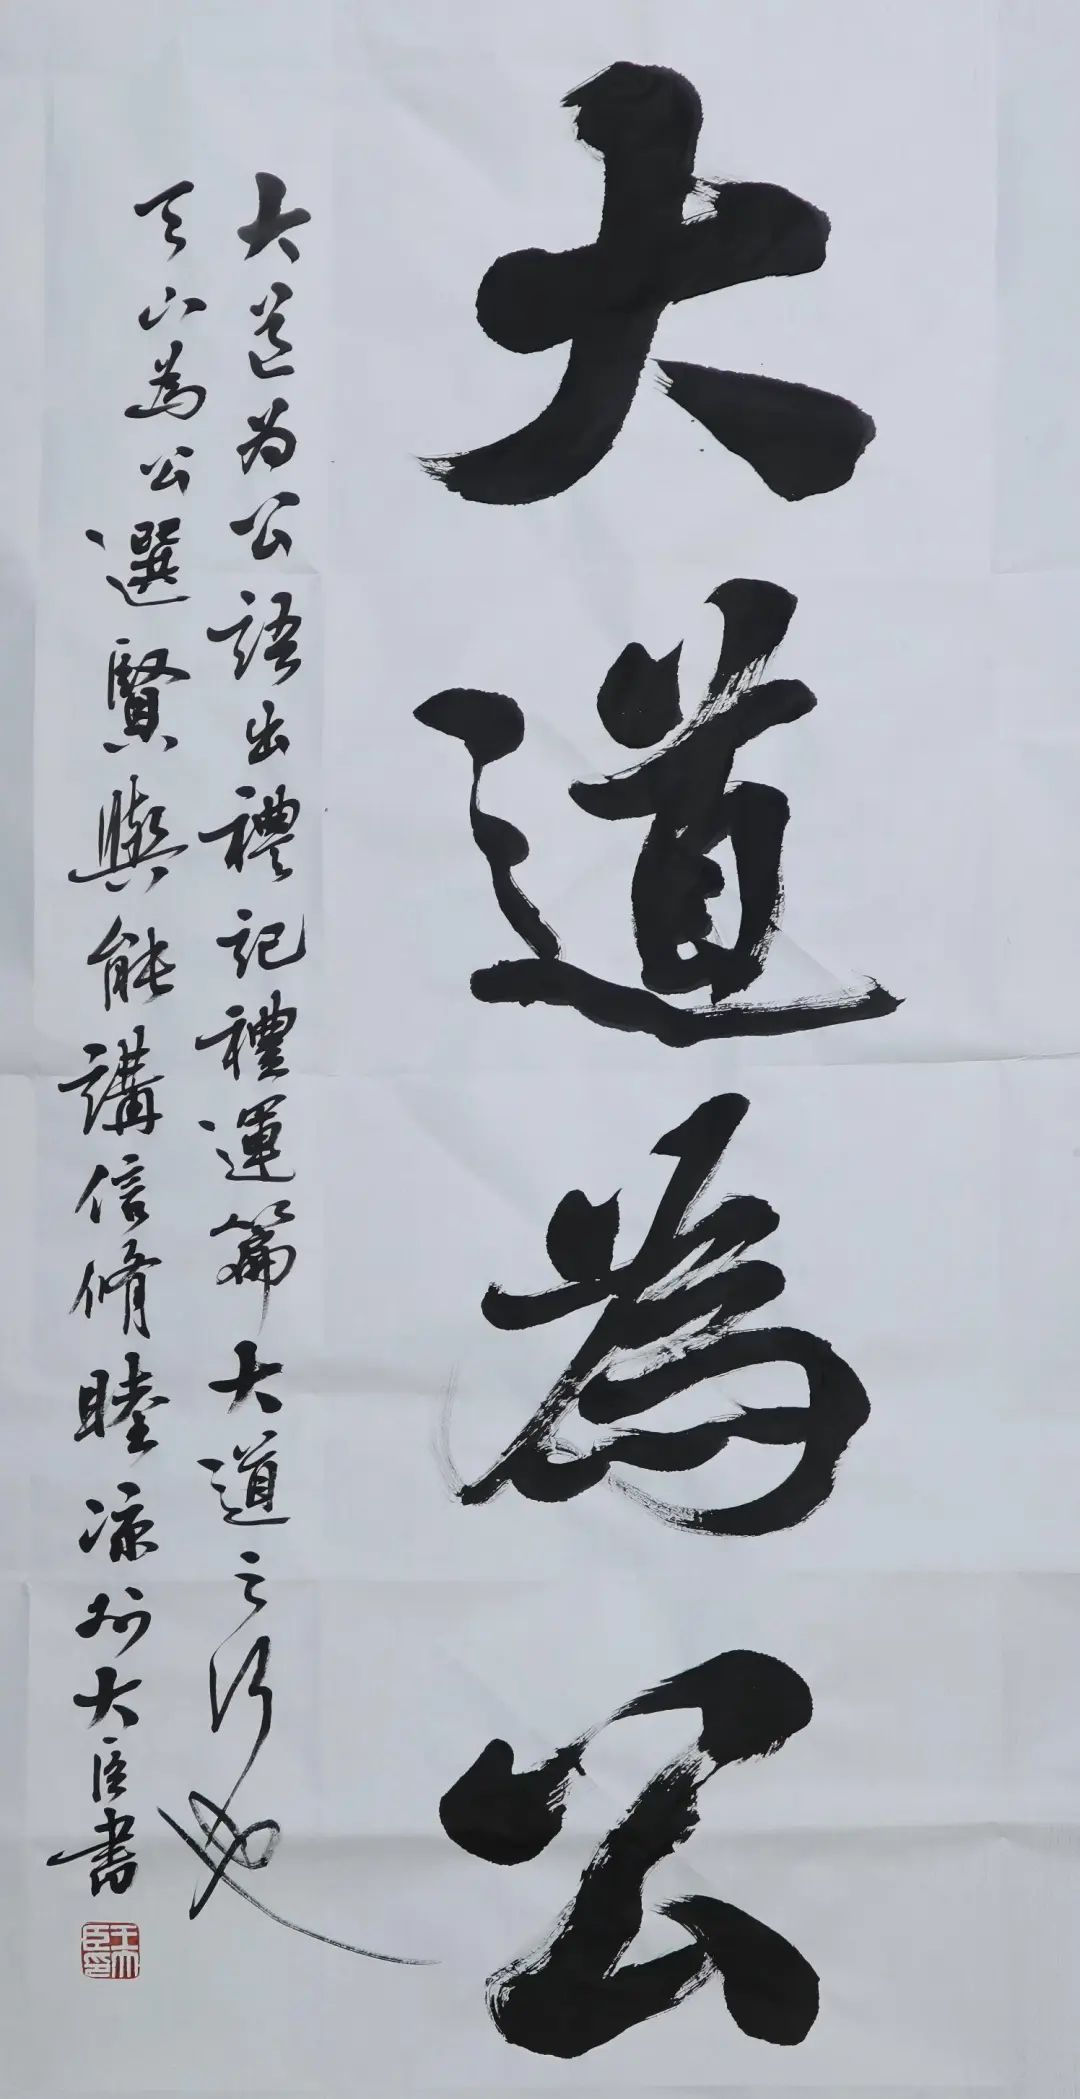 大道為公
大道为公語出禮記禮運篇大道之行也
天下為公選賢與能講信脩睦凉州大臣書
王大臣印